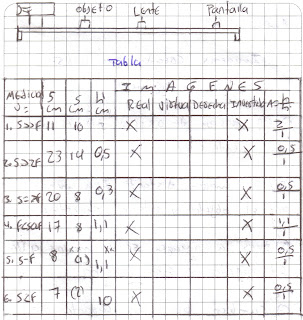 OBJETO Lente Pantalla
Tabla
IMAGENES
Medida S S' h' Real Virtual Derecha Invertida A=h'/h
cm cm cm
1. S>>F 11 10 - X X 2/1
2. S>2F 23 14 0,5 X X 0,5/1
3. S=2F 20 8 0,3 X X 0,5/1
4. F<S<2F 17 8 1,1 X X 1,1/1
5. S=F 8 (1) 1,1 X X 0,5/1
6. S<F 7 (2) 10 X X 0,5/1